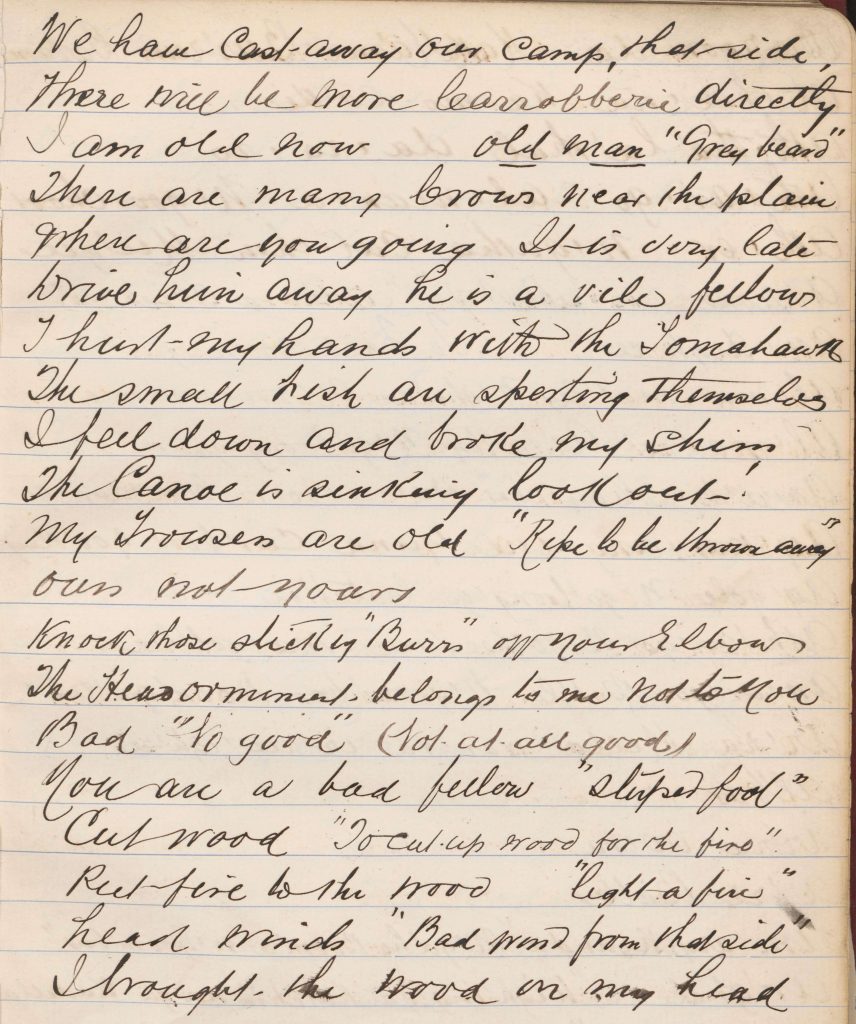 We have Cast-away our Camp, that side,
There will be more Carrobberie directly
I am old now old man "Grey beard"
There are many Crows near the plain
Where are you going It is very late
Drive him away he is a vile fellow
I hurt my hands with the Tomahawk
The small Fish are sporting themselves
I fell down and broke my shin
The Canoe is sinking look out!
My Trowsers are old "Ripe to be thrown away"
ours not yours
Knock those sticky "Burrs" off your Elbow
The Head ornament belongs to me not to you
Bad "No good" (Not at all good)
You are a bad fellow "stuped fool"
Cut wood "To cut up wood for the fire".
Put fire to the wood "light a fire"
head winds "Bad wind from that side"
I brought the wood on my head